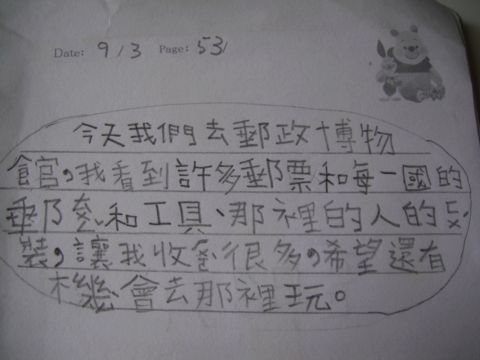 Date: 9/3 Page: 53
今天我們去郵政博物
館。我看到許多郵票和每一國的
郵差和工具、那裡的人的服
裝,讓我收穫很多,希望還有
機會去那裡玩。